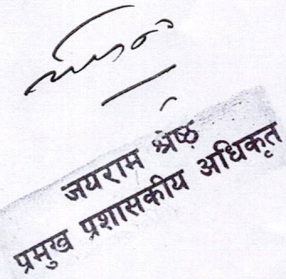 जयराम श्रेष्ठ
प्रमुख प्रशासकीय अधिकृत